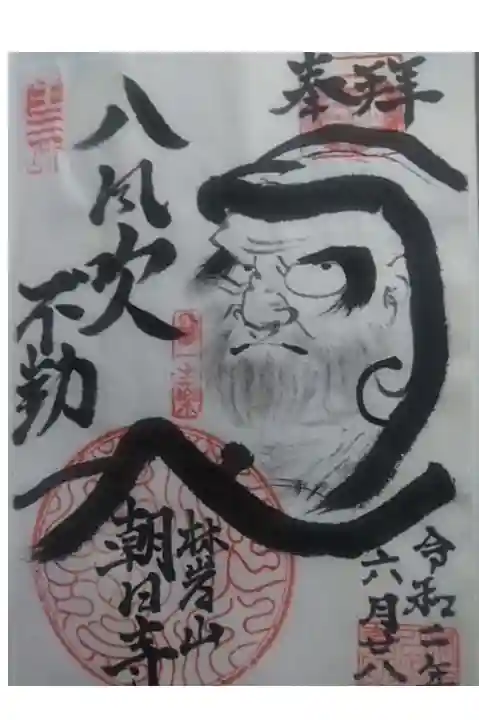 奉拝
八風吹
不動
林岩山
朝日寺
令和二年
六月廿八